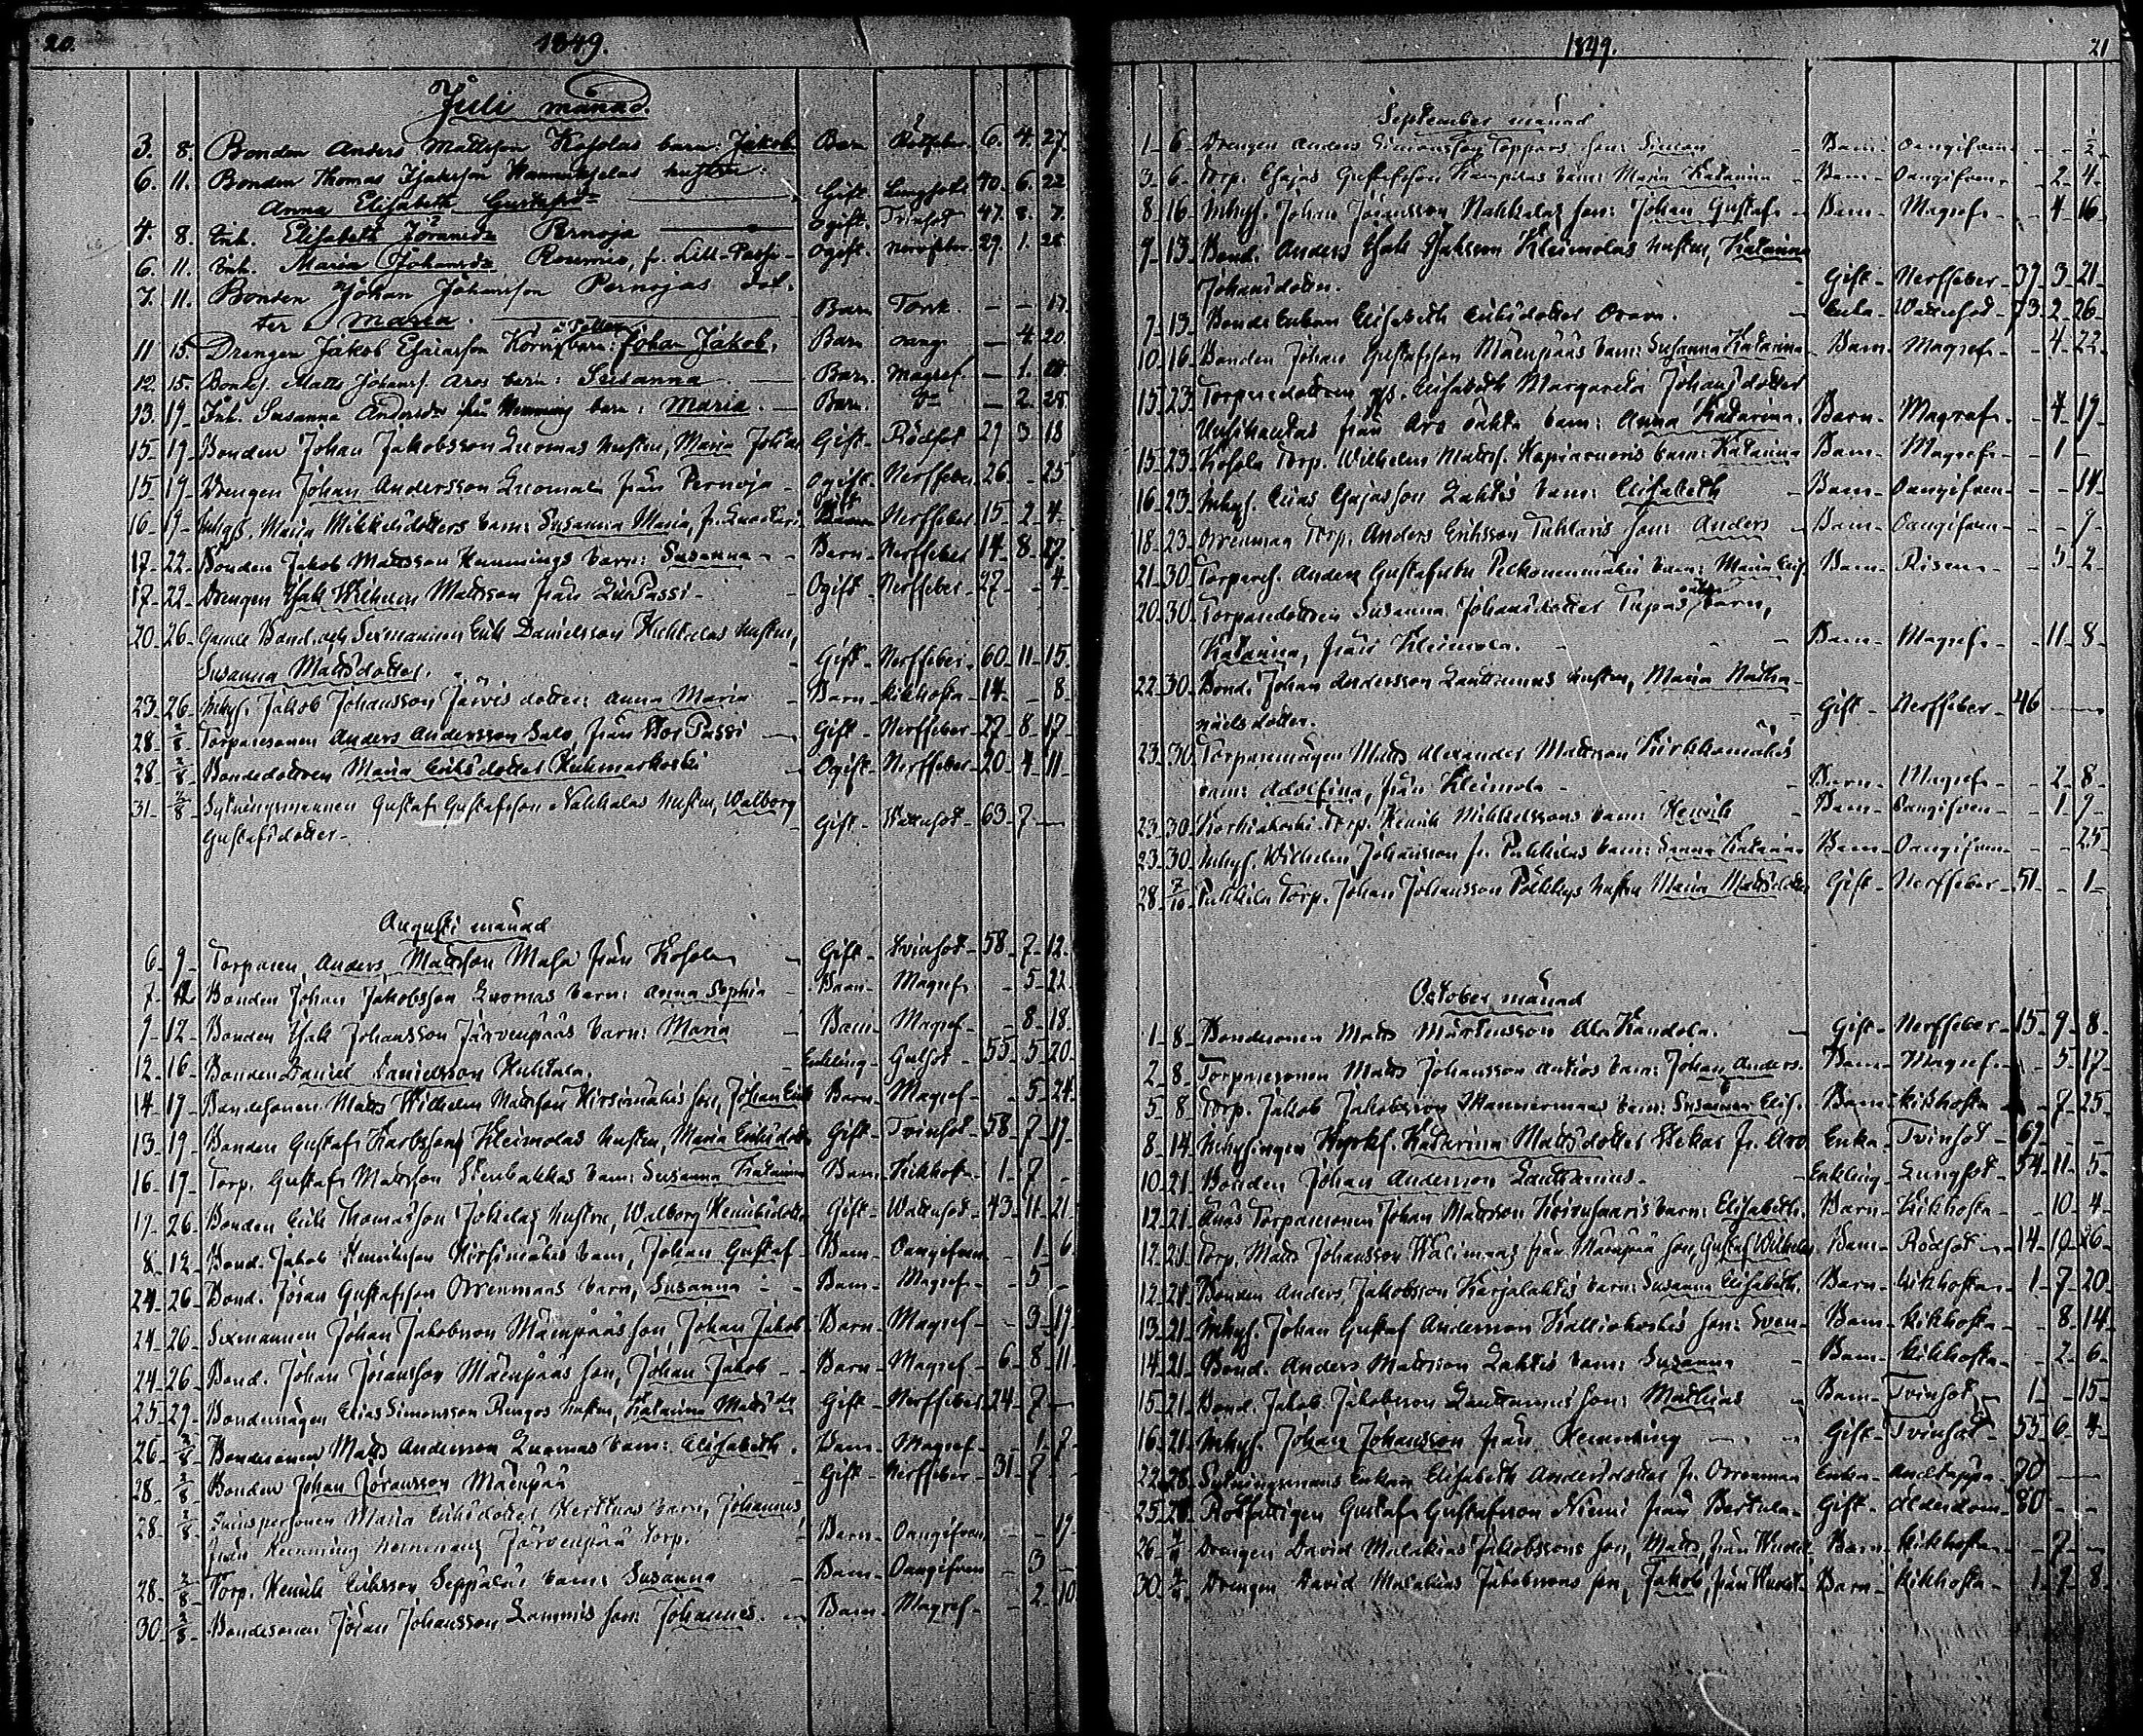 20. 1849.
Juli månad.
3. 8. Bonden Anders Mattsson Kosolas barn: Jakob Barn Rötfeber 6. 4. 27.
6. 11. Bonden Thomas hustru:
Anna Elisabeth Gustafsdr Gift Lungsot 40. 6. 22
4. 8. Inh. Elisabeth Göransdr Pernoja Ogift Tvinsot 47. 8. 7.
6. 11. Inh. Maria Johansdr Rosunio, fr. Lill-Passi Ogift Nervfeber 29. 1. 28
7. 11. Bonden Johan Johansson Pernojas dot-
ter Maria. Barn Torsk — — 17
11 15. Drengen Jakob Esaiasson barn: Johan Jakob. Barn oang. — 4. 20.
12. 15. Bondes. Matts Johanss. Aros barn: Susanna. Barn. Magref — 1.
13. 19. Inh. Susanna Andersdr från Hemming barn: Maria. Barn. Do — 2. 28.
15. 19. Bonden Johan Jakobsson Luomas hustru, Maria Johans Gift Rödsot 29 3 18
15. 19. Drengen Johan Andersson Luomala från Pernoja Ogift Nerffeber 26 - 25
16. 19. Inhys. Maria Mikkelsdotters barn: Susanna Maria, fr. Nerffeber 15 2 4
17. 22. Bonden Jakob Mattsson Hemmings barn: Susanna Barn Nerffeber 14 8 27.
17. 22. Drengen Isak Wilhelm Mattsson från Lill Passi Ogift Nerffeber 27 - 4
20. 26. Gamle Bond. och Sexmannen Erik Danielsson Huhtalas hustru,
Susanna Mattsdotter. Gift Nerffeber 60 11 15.
23. 26. Inhys. Jakob Johansson Järvis dotter: Anna Maria Barn Kikhosta 14 - 8
28. 2/8 Torparesonen Anders Andersson Salo, från Stor Passi Gift Nerffeber 27 8 17
28 2/8 Bondedottren Maria Eriksdotter Kuhmarkoski Ogift Nerffeber 20 4 11
31. 2/8 Sytningsmannen Gustaf Gustafsson Nahkalas hustru, Walborg
Gustafsdotter. Gift Wattusot 63 7 —
Augusti månad
6 9 Torparen Anders Mattsson Maso från Kosola Gift Tvinsot 58 7 12.
7 12. Bonden Johan Jakobsson Luomas barn: Anna Sophia Barn Magref - 5 22
9 12 Bonden Isak Johansson Järvenpääs barn: Maria Barn Magref - 8 18
12 16 Bonden Daniel Danielsson Huhtala. Enkling Gulsot 55 5 20
14 17 Bondesonen Matts Wilhelm Mattsson Hirsimäkis son, Johan Erik Barn Magref - 5 24
13 19 Bonden Gustaf Karlsson Kleimolas hustru, Maria Eriksdotter Gift Tvinsot 58 7 19
16 17 Torp. Gustaf Mattsson Stenbakkas barn: Susanna Katarina Barn Kikhosta 1 7
17 26 Bonden Erik Thomasson Jokelas hustru, Walborg Henriksdotter Gift Wattusot 43 11 21
8 12 Bond. Jakob Henriksson Hirsimäkis barn, Johan Gustaf Barn Oangifven 1 6
24 26 Bond. Jöran Gustafsson Orrenmaas barn, Susanna Barn Magref - 5 -
24 26 Sexmannen Johan Jakobsson Mäenpääs son, Johan Jakob Barn Magref - 3 19
24 26 Bond. Johan Jöransson Mäenpääs son, Johan Jakob Barn Magref 6 8 11
25 29 Bondemågen Elias Simonsson Rengos hustru, Katarina Mattsdr Gift Nerffeber 24 7 -
26 2/8 Bondesonen Matts Andersson Luomas barn: Elisabeth. Barn Magref - 1 7
28 2/8 Bonden Johan Jöransson Mäenpää Gift Nerffeber 31 7
28 2/8 Maria Eriksdotter Herttuas barn, Johannes
från Hemming hemmans Järvenpää torp. Barn Oangifven 19
28 2/8 Torp. Henrik Eriksson Seppäläs barn: Susanna Barn Oangifven 3
30 2/8 Bondesonen Jöran Johansson Lammis son: Johannes. Barn Magref - 2 10
1849. 21
September månad
1 6 Drengen Anders Simonsson Toppars son: Simon Barn Oangifven ½
3 6 Torp. Esajas Gustafsson Kampilas barn: Maria Katarina Barn Oangifven 2 4
8 16 Inhys. Johan Jöransson Nahkalas son: Johan Gustaf Barn Magref 4 16
9 13 Bond. Anders Isak Isaksson Kleimolas hustru, Katarina
Johansdotter. Gift Nerffeber 37 3 21
7 13 Bonde Enkan Elisabeth Eriksdotter Orava. Enka Wattusot 73 2 26
10 16 Bonden Johan Gustafsson Mäenpääs barn: Susanna Katarina Barn Magref 4 22
15 23 Torparedottren Elisabeth Margareta Johansdotter
från Aro oäkta barn: Anna Katarina. Barn Magref 4 19
15 23 Kosola Torp. Wilhelm Matts. barn: Katarina Barn Magref 1
16 23 Inhys. Elias Esajasson Lahtis barn: Elisabeth Barn Oangifven 14
18 23 Orrenmaa Torp. Anders Eriksson Tuhtaris son: Anders Barn Oangifven 9
21 30 Torpares. Anders Gustafsson Pelkonenmäkis barn: Maria Elis. Barn Risen 3 2
20 30 Torparedottren Susanna Johansdotter Tupas oäkta barn,
Katarina, från Kleimola. Barn Magref 11 8
22 30 Bond. Johan Andersson Lauttamus hustru, Maria Natha-
naelsdotter. Gift Nerffeber 46 —
23 30 Torparemågen Matts Alexander Mattsson Kirkkomäkis
barn: Adolfina, från Kleimola Barn Magref 2 8
23 30 Torp. Henrik Mikkelssons barn: Henrik Barn Oangifven 1 9
23 30 Inhys. Wilhelm Johansson fr. Puhkilas barn: Sanna Katarina Barn Oangifven 25
28 7/10 Puhkila Torp. Johan Johansson Pölkkys hustru Maria Mattsdotter Gift Nerffeber 51 - 1
October månad
1 8 Bondesonen Matts Mårtensson Ala Kandola. Gift Nerffeber 15 9 8
2 8 Torparesonen Matts Johansson Antios barn: Johan Anders. Barn Magref 5 17
5 8 Torp. Jakob Jakobsson Mannermaas barn: Susanna Elis. Barn Kikhosta 7 25
8 14 Inhysingen Katarina Mattsdotter fr. Aro Enka Tvinsot 67
10 21 Bonden Johan Andersson Lauttamus. Enkling Lungsot 54 11 5
12 21 Torparesonen Johan Mattsson Koivusaaris barn: Elisabeth. Barn Kikhosta 10 4
12 21 Torp. Matts Johansson Wäliniaas från Mäenpää son, Gustaf Wilhelm Barn Rödsot 14 10 26
12 21 Bonden Anders Jakobsson Karjalahtis barn: Susanna Elisabeth. Barn Kikhosta 1 7 20
13 21 Inhys. Johan Gustaf Andersson Kalliokoskis son: Sven Barn Kikhosta 8 14
14 21 Bond. Anders Mattsson Lahtis barn: Susanna Barn Kikhosta 2 6
15 21 Bond. Jakob Jakobsson Lauttamus son: Mathias Barn Tvinsot 1 - 15
16 21 Inhys. Johan Johansson från Hemming Gift Tvinsot 55 6 4
22 28 Sytningsmans Enkan Elisabeth Andersdotter fr. Orrenmaa Enka Andtäppa 70 —
25 28 Rotfattigen Gustaf Gustafsson Niemi från Bertula Gift Ålderdom 80
26 4/11 Drengen David Malakias Jakobssons son, Matts, från Barn Kikhosta 7
30 4/11 Drengen David Malakias Jakobssons son, Jakob, från Barn Kikhosta 1 7 8